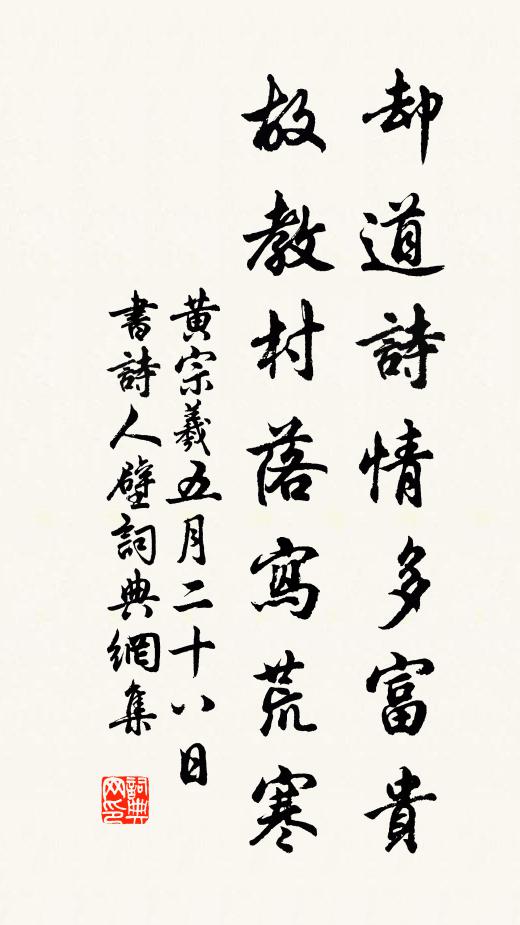 却道詩情多富貴
故教村落寫荒寒
黃宗羲五月二十八日
書詩人壁詞典網集
詞典
网印